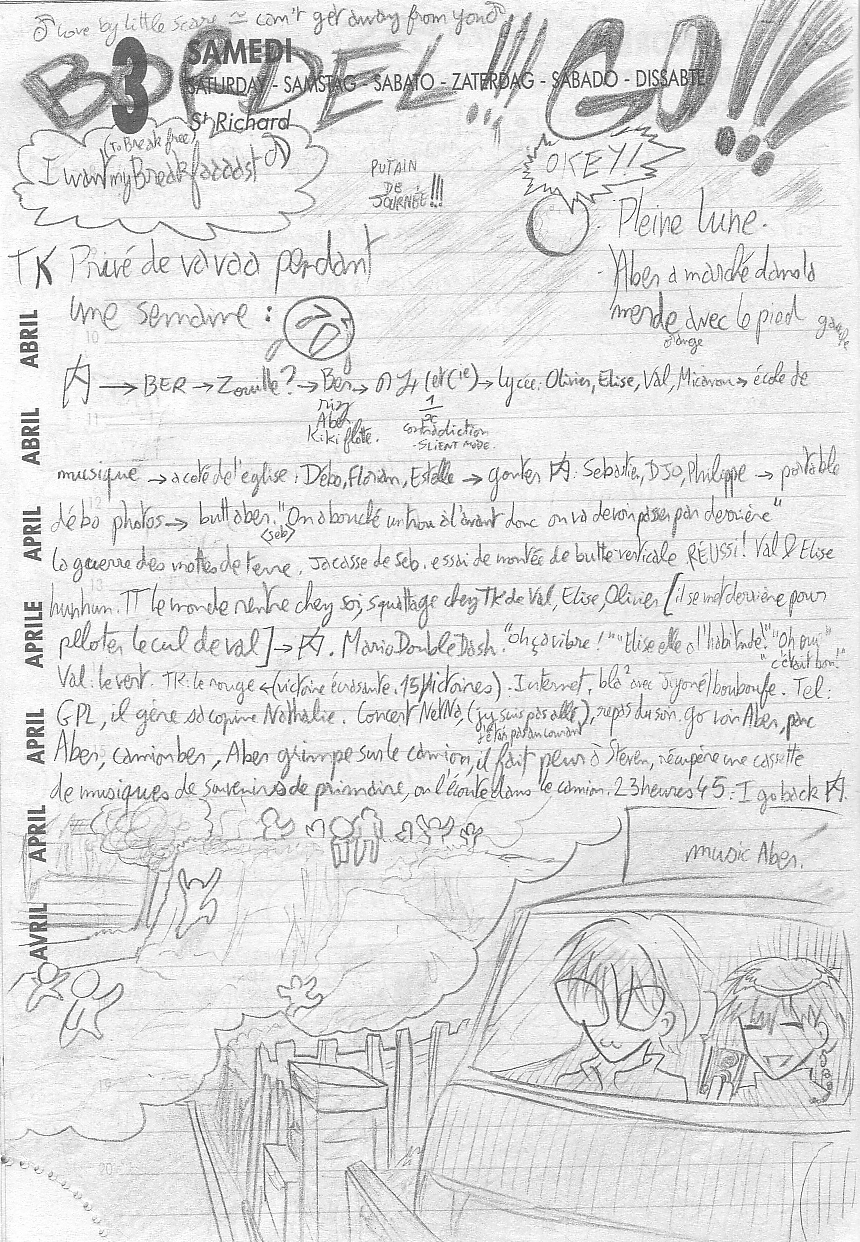 ♂ Love by little scare ≈ can't get away from you ♂
BORDEL!!! GO!!!
3
SAMEDI
SATURDAY - SAMSTAG - SABATO - ZATERDAG - SÁBADO - DISSABTE
St Richard
(To Break free)
I want my Breakfaaaast
PUTAIN
DE
JOURNÉE!!!
OKEY!
- Pleine lune.
- Aber a marché dans la
merde avec le pied gauche
orange
TK Privé de vavaa pendant
une semaine :
→ BER → Zouille? → Ber → (et Cie) → lycée: Olivier, Elise, Val, → école de
Aber
Kiki flotte.
1
contradiction
- SLIENT MODE.
musique → a coté de l'eglise : Débo, Florian, Estelle → gouter : Sebastien, DJO, Philippe → portable
débo photos → butt aber. "On a bouché un trou à l'avant donc on va devoir passer par derrière"
<seb>
La guerre des mottes de terre. Jacasse de Seb. essai de montée de butte verticale RÉUSSI! Val & Elise
humhum. TT le monde rentre chez soi, squattage chez TK de Val, Elise, Olivier [il se met derrière pour
peloter le cul de val] → . Mario Double Dash. "Oh ça vibre!" "Elise elle a l'habitude." "Oh oui"
"c'était bon."
Val: le vert. TK: le rouge ← (victoire écrasante. 15 Victoires). Internet, bla² avec Jiyoné/bouboufe. Tel:
GPL, il gène sa copine Nathalie. Concert NeNo, (j'y suis pas allé), repas du soir. go voir Aber, parc
j'étais pas au courant
Aber, camion ber, Aber grimpe sur le camion, il fait peur à Steven, récupère une cassette
de musiques de souvenirs de primaire, on l'écoute dans le camion. 23 heures 45: I go back
music Aber.
ABRIL
ABRIL
APRIL
APRILE
APRIL
APRIL
AVRIL